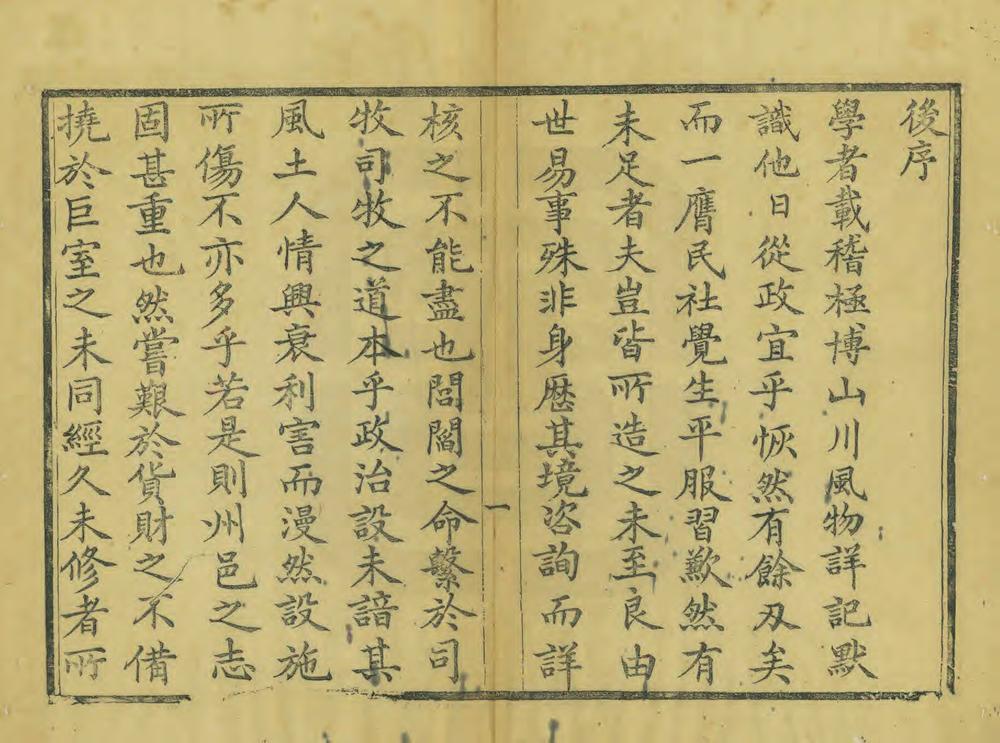 後序
學者載稽極博山川風物詳記默
識他日從政宜乎恢然有餘刄矣
而一膺民社覺生平服習歉然有
未足者夫豈皆所造之未至良由
世易事殊非身歷其境咨詢而詳
一
核之不能盡也閭閻之命繫於司
牧司牧之道本乎政治設未諳其
風土人情興衰利害而漫然設施
所傷不亦多乎若是則州邑之志
固甚重也然嘗艱於貨財之不備
撓於巨室之未同經久未修者所